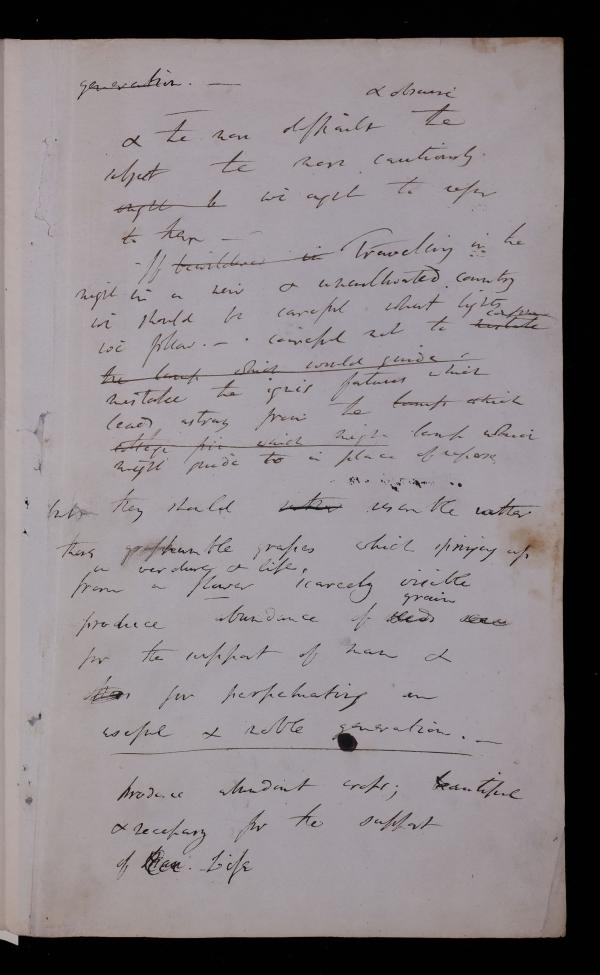 generation. —
& obscure
& the more difficult the
subject the more cautiously
ought to we ought to refer
to them —
If bewildered in Travelling in the
night in a new & uncultivated country
we should be careful what lights
we follow. — careful not to mistake
confuse
the lamp which would guide
mistake the ignis fatuus which
leads astray from the lamp which
cottage fire which might lamp which
might guide to a place of repose
they should resemble rather
those humble grasses which springing up
in verdure & life,
from a flower scarcely visible
grain
produce abundance of seeds
for the support of man &
for perpetuating an
useful & noble generation. —
produce abundant crops; beautiful
& necessary for the support
of Man. Life